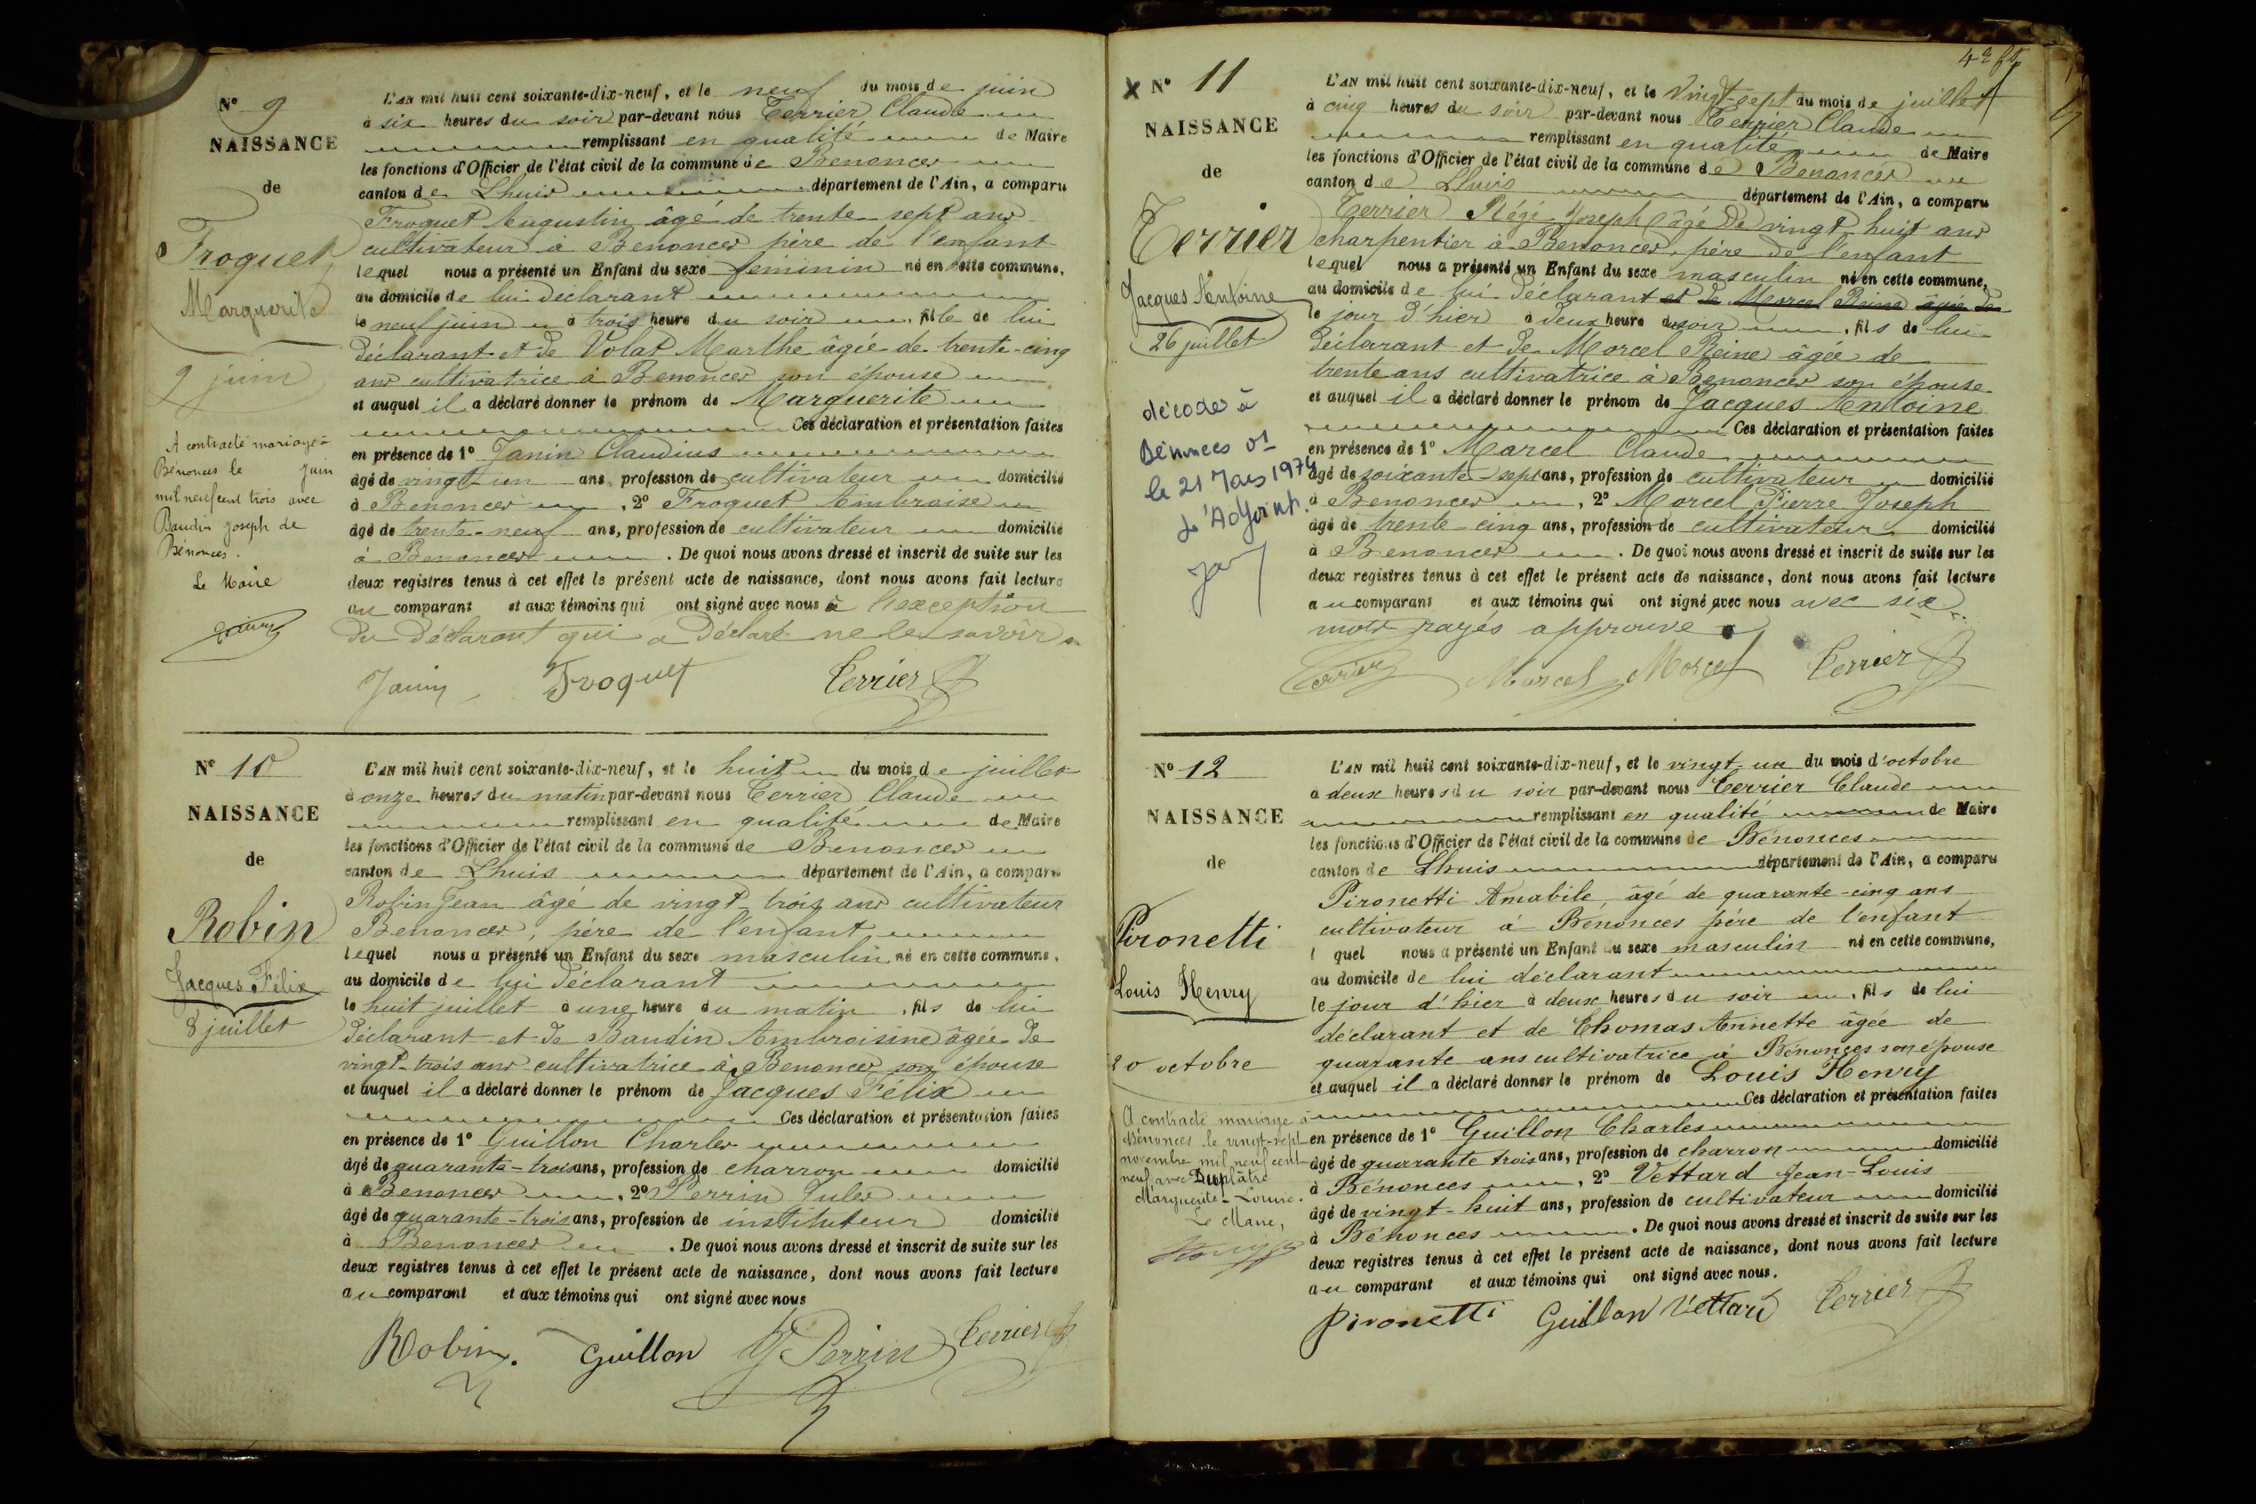 Nº 9
NAISSANCE
de
Froquet
Marguerite
9 juin
A contracté mariage à
Bénonces le juin
mil neuf cent trois avec
Baudin Joseph de
Bénonces.
Le Maire
L'AN mil huit cent soixante-dix-neuf, et le neuf du mois de juin
à six heures du soir par-devant nous Terrier Claude
remplissant en qualité de Maire
les fonctions d'Officier de l'état civil de la commune de Benonces
canton de Lhuis département de l'Ain, a comparu
Froquet Augustin âgé de trente sept ans
cultivateur à Benonces père de l'enfant
lequel nous a présenté un Enfant du sexe feminin né en cette commune,
au domicile de lui déclarant
le neuf juin à trois heure du soir , fille de lui
déclarant et de Volat Marthe âgée de trente-cinq
ans cultivatrice à Benonces son épouse
et auquel il a déclaré donner le prénom de Marguerite
Ces déclaration et présentation faites
en présence de 1º Janin Claudius
âgé de vingt-un ans, profession de cultivateur domicilié
à Benonces , 2º Froquet Ambroise
âgé de trente-neuf ans, profession de cultivateur domicilié
à Benonces . De quoi nous avons dressé et inscrit de suite sur les
deux registres tenus à cet effet le présent acte de naissance, dont nous avons fait lecture
au comparant et aux témoins qui ont signé avec nous à l'exception
du déclarant qui a déclaré ne le savoir
Janin Froquet Terrier
Nº 10
NAISSANCE
de
Robin
Jacques Félix
8 juillet
L'AN mil huit cent soixante-dix-neuf, et le huit du mois de juillet
à onze heures du matin par-devant nous Terrier Claude
remplissant en qualité de Maire
les fonctions d'Officier de l'état civil de la commune de Benonces
canton de Lhuis département de l'Ain, a comparu
Robin Jean âgé de vingt-trois ans cultivateur
Benonces, père de l'enfant
lequel nous a présenté un Enfant du sexe masculin né en cette commune,
au domicile de lui déclarant
le huit juillet à une heure du matin , fils de lui
déclarant et de Baudin Ambroisine âgée de
vingt-trois ans cultivatrice à Benonces son épouse
et auquel il a déclaré donner le prénom de Jacques Félix
Ces déclaration et présentation faites
en présence de 1º Guillon Charles
âgé de quarante-trois ans, profession de charron domicilié
à Benonces , 2º Perrin Jules
âgé de quarante-trois ans, profession de instituteur domicilié
à Benonces . De quoi nous avons dressé et inscrit de suite sur les
deux registres tenus à cet effet le présent acte de naissance, dont nous avons fait lecture
au comparant et aux témoins qui ont signé avec nous
Robin. Guillon J Perrin Terrier
X Nº 11
NAISSANCE
de
Terrier
Jacques Antoine
26 juillet
décédé à
Bénonces 01
le 21 Mars 1974
L'Adjoint.
L'AN mil huit cent soixante-dix-neuf, et le vingt-sept du mois de juillet
à cinq heures du soir par-devant nous Terrier Claude
remplissant en qualité de Maire
les fonctions d'Officier de l'état civil de la commune de Benonces
canton de Lhuis département de l'Ain, a comparu
Terrier Régi Joseph âgé de vingt huit ans
charpentier à Benonces, père de l'enfant
lequel nous a présenté un Enfant du sexe masculin né en cette commune,
au domicile de lui déclarant et de Morcel Reine âgée de
le jour d'hier à deux heure du soir , fils de lui
déclarant et de Morcel Reine âgée de
trente ans cultivatrice à Benonces son épouse
et auquel il a déclaré donner le prénom de Jacques Antoine
Ces déclaration et présentation faites
en présence de 1º Marcel Claude
âgé de soixante-sept ans, profession de cultivateur domicilié
à Benonces , 2º Morcel Pierre Joseph
âgé de trente-cinq ans, profession de cultivateur domicilié
à Benonces . De quoi nous avons dressé et inscrit de suite sur les
deux registres tenus à cet effet le présent acte de naissance, dont nous avons fait lecture
au comparant et aux témoins qui ont signé avec nous avec six
mots rayés approuvé
Terrier Marcel Morcel Terrier
Nº 12
NAISSANCE
de
Pironetti
Louis Henry
20 octobre
A contracté mariage à
Bénonces le vingt-sept
novembre mil neuf cent
neuf avec Duplâtre
Marguerite-Louise.
Le Maire,
L'AN mil huit cent soixante-dix-neuf, et le vingt-un du mois d'octobre
à deux heures du soir par-devant nous Terrier Claude
remplissant en qualité de Maire
les fonctions d'Officier de l'état civil de la commune de Bénonces
canton de Lhuis département de l'Ain, a comparu
Pironetti Amabile, âgé de quarante-cinq ans
cultivateur à Bénonces père de l'enfant
l quel nous a présenté un Enfant du sexe masculin né en cette commune,
au domicile de lui déclarant
le jour d'hier à deux heures du soir , fils de lui
déclarant et de Thomas Annette âgée de
quarante ans cultivatrice à Bénonces son épouse
et auquel il a déclaré donner le prénom de Louis Henry
Ces déclaration et présentation faites
en présence de 1º Guillon Charles
âgé de quarante trois ans, profession de charron domicilié
à Bénonces , 2º Vettard Jean-Louis
âgé de vingt-huit ans, profession de cultivateur domicilié
à Bénonces . De quoi nous avons dressé et inscrit de suite sur les
deux registres tenus à cet effet le présent acte de naissance, dont nous avons fait lecture
au comparant et aux témoins qui ont signé avec nous.
Pironetti Guillon Vettard Terrier